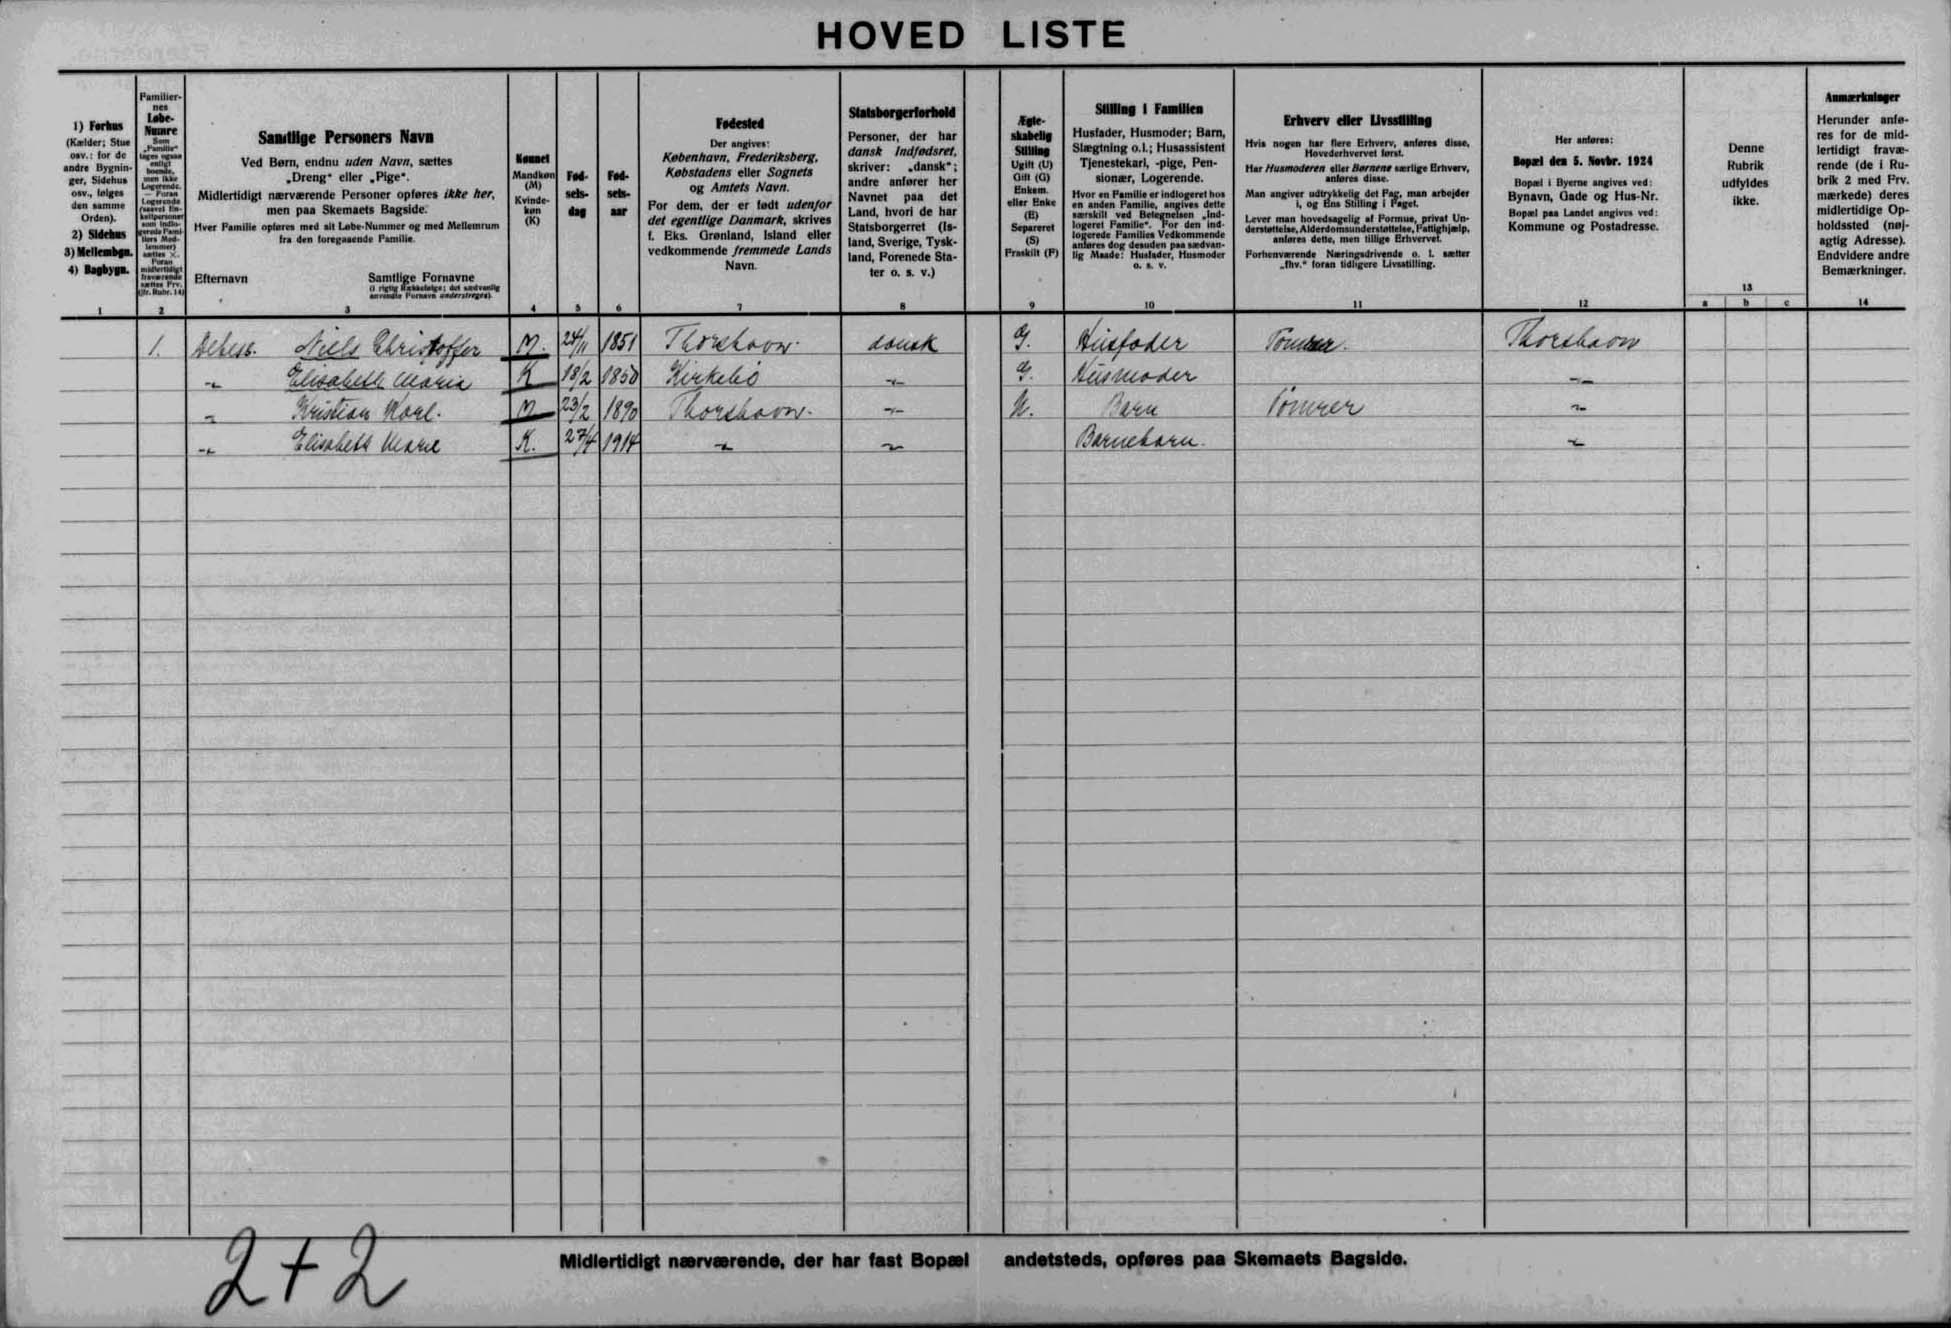 HOVED LISTE
1) Forhus
(Kælder; Stue
osv.: for de
andre Bygnin-
ger, Sidehus
osv., følges
den samme
Orden).
2) Sidehus
3) Mellembgn.
4) Bagbygn.
1
Familier-
nes
Løbe-
Numre
Som
„Familie“
tages ogsaa
enligt
boende,
men ikke
Logerende.
— Foran
Logerende
(saavel En-
keltpersoner
som indlo-
gerede Fami-
liers Med-
lemmer)
sættes ×.
Foran
midlertidigt
fraværende
sættes Frv.
(jfr. Rubr. 14)
2
Samtlige Personers Navn
Ved Børn, endnu uden Navn, sættes
„Dreng“ eller „Pige“.
Midlertidigt nærværende Personer opføres ikke her,
men paa Skemaets Bagside.
Hver Familie opføres med sit Løbe-Nummer og med Mellemrum
fra den foregaaende Familie.
Efternavn
Samtlige Fornavne
(i rigtig Rækkefølge; det sædvanlig
anvendte Fornavn understreges).
3
Kønnet
Mandkøn
(M)
Kvinde-
køn
(K)
4
Fød-
sels-
dag
5
Fød-
sels-
aar
6
Fødested
Der angives:
København, Frederiksberg,
Købstadens eller Sognets
og Amtets Navn.
For dem, der er født udenfor
det egentlige Danmark, skrives
f. Eks. Grønland, Island eller
vedkommende fremmede Lands
Navn.
7
Statsborgerforhold
Personer, der har
dansk Indfødsret,
skriver: „dansk“;
andre anfører her
Navnet paa det
Land, hvori de har
Statsborgerret (Is-
land, Sverige, Tysk-
land, Forenede Sta-
ter o. s. v.)
8
Ægte-
skabelig
Stilling
Ugift (U)
Gift (G)
Enkem.
eller Enke
(E)
Separeret
(S)
Fraskilt (F)
9
Stilling i Familien
Husfader, Husmoder; Barn,
Slægtning o.l.; Husassistent
Tjenestekarl, -pige, Pen-
sionær, Logerende.
Hvor en Familie er indlogeret hos
en anden Familie, angives dette
særskilt ved Betegnelsen „Ind-
logeret Familie“. For den ind-
logerede Families Vedkommende
anføres dog desuden paa sædvan-
lig Maade: Husfader, Husmoder
o. s. v.
10
Erhverv eller Livsstilling
Hvis nogen har flere Erhverv, anføres disse,
Hovederhvervet først.
Har Husmoderen eller Børnene særlige Erhverv,
anføres disse.
Man angiver udtrykkelig det Fag, man arbejder
i, og Ens Stilling i Faget.
Lever man hovedsagelig af Formue, privat Un-
derstøttelse, Alderdomsunderstøttelse, Fattighjælp,
anføres dette, men tillige Erhvervet.
Forhenværende Næringsdrivende o. l. sætter
„fhv.“ foran tidligere Livsstilling.
11
Her anføres:
Bopæl den 5. Novbr. 1924
Bopæl i Byerne angives ved:
Bynavn, Gade og Hus-Nr.
Bopæl paa Landet angives ved:
Kommune og Postadresse.
12
Denne
Rubrik
udfyldes
ikke.
13
a b c
Anmærkninger
Herunder anfø-
res for de mid-
lertidigt fravæ-
rende (de i Ru-
brik 2 med Frv.
mærkede) deres
midlertidige Op-
holdssted (nøj-
agtig Adresse).
Endvidere andre
Bemærkninger.
14
1. Debess. Niels Christoffer M. 24/11 1851 Thorshavn. dansk G. Husfader Tømrer. Thorshavn
-"- Elisabeth Maria K 18/2 1850 Kirkebö -"- G. Husmoder -"-
-"- Kristian Karl. M 23/2 1890 Thorshavn. -"- U. Barn Tömrer -"-
-"- Elisabeth Marie K. 27/4 1914 -"- -"- Barnebarn. -"-
Midlertidigt nærværende, der har fast Bopæl andetsteds, opføres paa Skemaets Bagside.
2+2